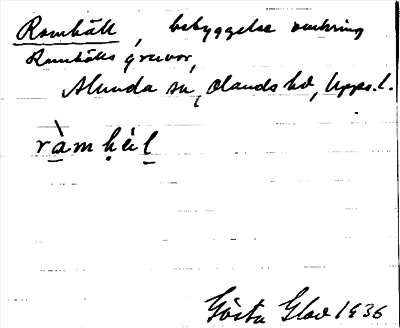 Ramhäll, bebyggelse omkring
Ramhälls gruvor,
Alunda sn, Olands hd, Upps. l.
ràmhèl
Gösta Glad 1936